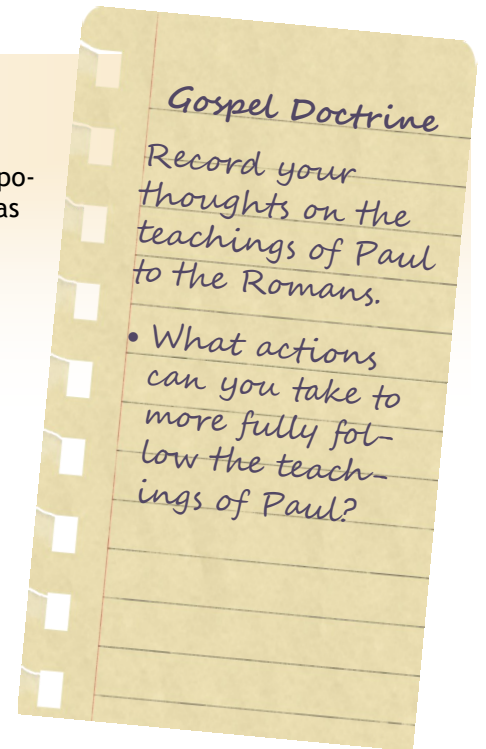 po-
as
Gospel Doctrine
Record your
thoughts on the
teachings of Paul
to the Romans.
• What actions
can you take to
more fully fol-
low the teach-
ings of Paul?